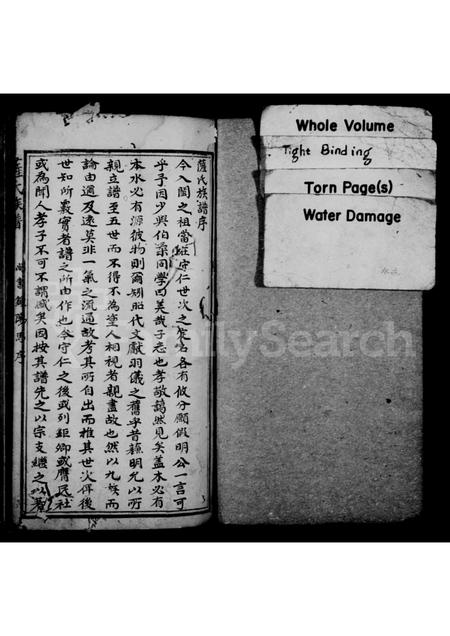 薩氏族譜序
今入閩之祖當推守仁世次之字名各有攸分願假明公一言可
乎予因少與伯桑同學曰美哉子志也孝敬藹然見矣蓋木必有
本水必有源彼物則爾矧昭代文獻羽儀之舊乎昔蘇明允以所
親立譜至五世而不得不為塗人相視者親盡故也然以九族而
論由邇及遠莫非一氣之流通故考其所自出而推其世次俾後
世知所觀實者譜之所由作也今守仁之後或列鉅卿或膺民社
或為聞人孝子不可不謂盛矣因按其譜先之以宗支繼之以
氏族譜
序
Whole Volume
Tight Binding
Torn Page(s)
Water Damage
FamilySearch